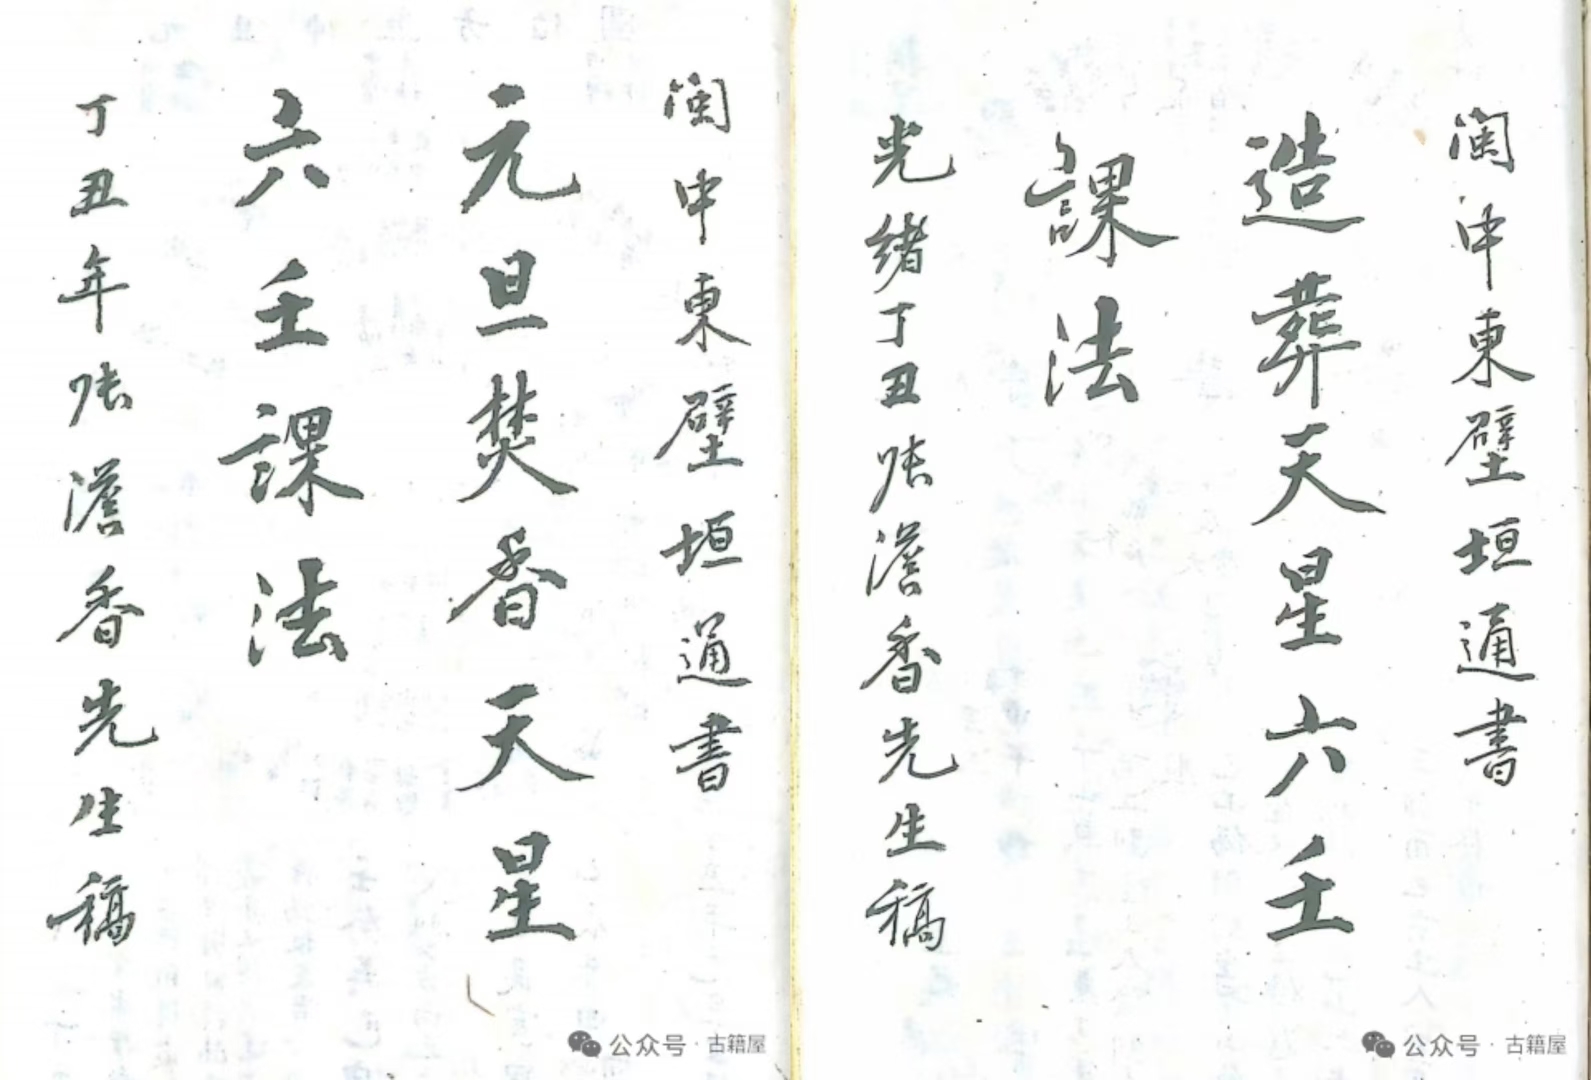 闽中東壁垣通書
造葬天星六壬
課法
光緒丁丑張澹香先生稿
闽中東壁垣通書
元旦焚香天星
六壬課法
丁丑年張澹香先生稿
公众号·古籍屋
公众号·古籍屋